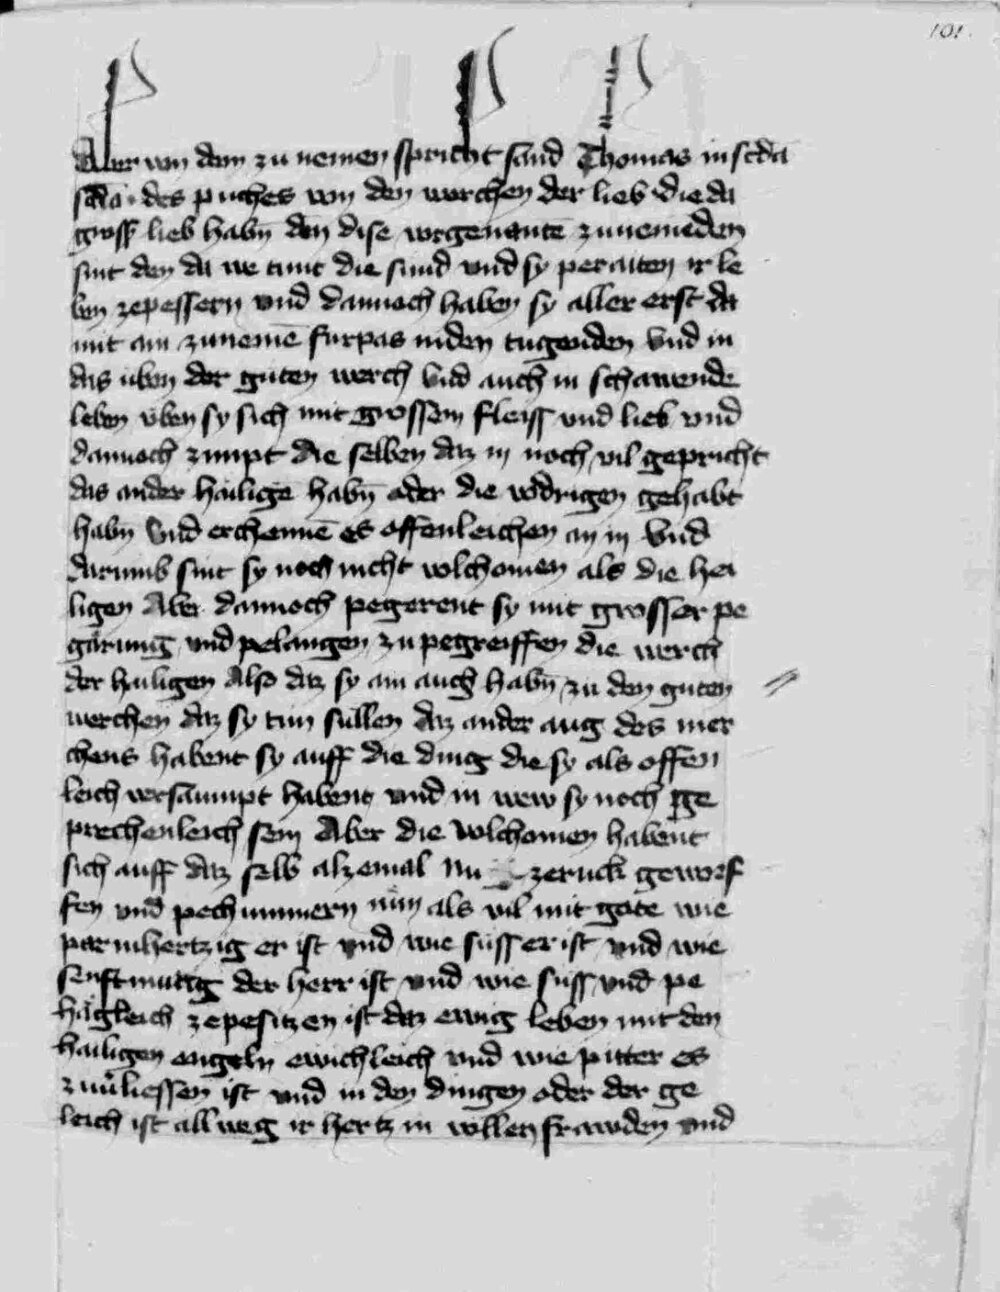 101.
Aber von dem zu nemen spricht sand Thomas in scda
scde des puches von den werchen der lieb die da
gross lieb habn̄ den dise vorgenante zunemeden
sint den da we tunt die sund vnd sy peraiten ir le
ben zepessern vnd dannoch haben sy aller erst da
mit ain zunemē furpas in den tugenden vnd in
das vben der guten werch vnd auch in schawende
leben vben sy sich mit grossem fleiss vnd lieb vnd
dannoch zimpt die selben daz in noch vil gepricht
das ander hailigē habn̄ oder die vodrigen gehabt
habn̄ vnd erchennē es offenleichen an in vnd
darumb sint sy noch nicht volchomen als die hei
ligen Aber dannoch pegerent sy mit grosser pe
gärung vnd pelangen zu pegreiffen die werch
der hailigen Also daz sy ain aug habn̄ zu den guten
werchen daz sy tun sullen daz ander aug des mer
chens habent sy auff die ding die sy als offen
leich versaumpt habent vnd in wew sy noch ge
prechenleich sein Aber die volchomen habent
sich auff daz selb alzemal zeruck geworf
fen vnd pechummern nūn als vil mit gote wie
parmhertzig er ist vnd wie süss er ist vnd wie
senftmutig der herr ist vnd wie süss vnd pe
hägleich zepesitzen ist daz ewig leben mit den
hailigen engeln ewichleich vnd wie pitter es
zuuliessen ist vnd in den dingen oder der ge
leich ist allweg ir hertz in vollen frawden vnd